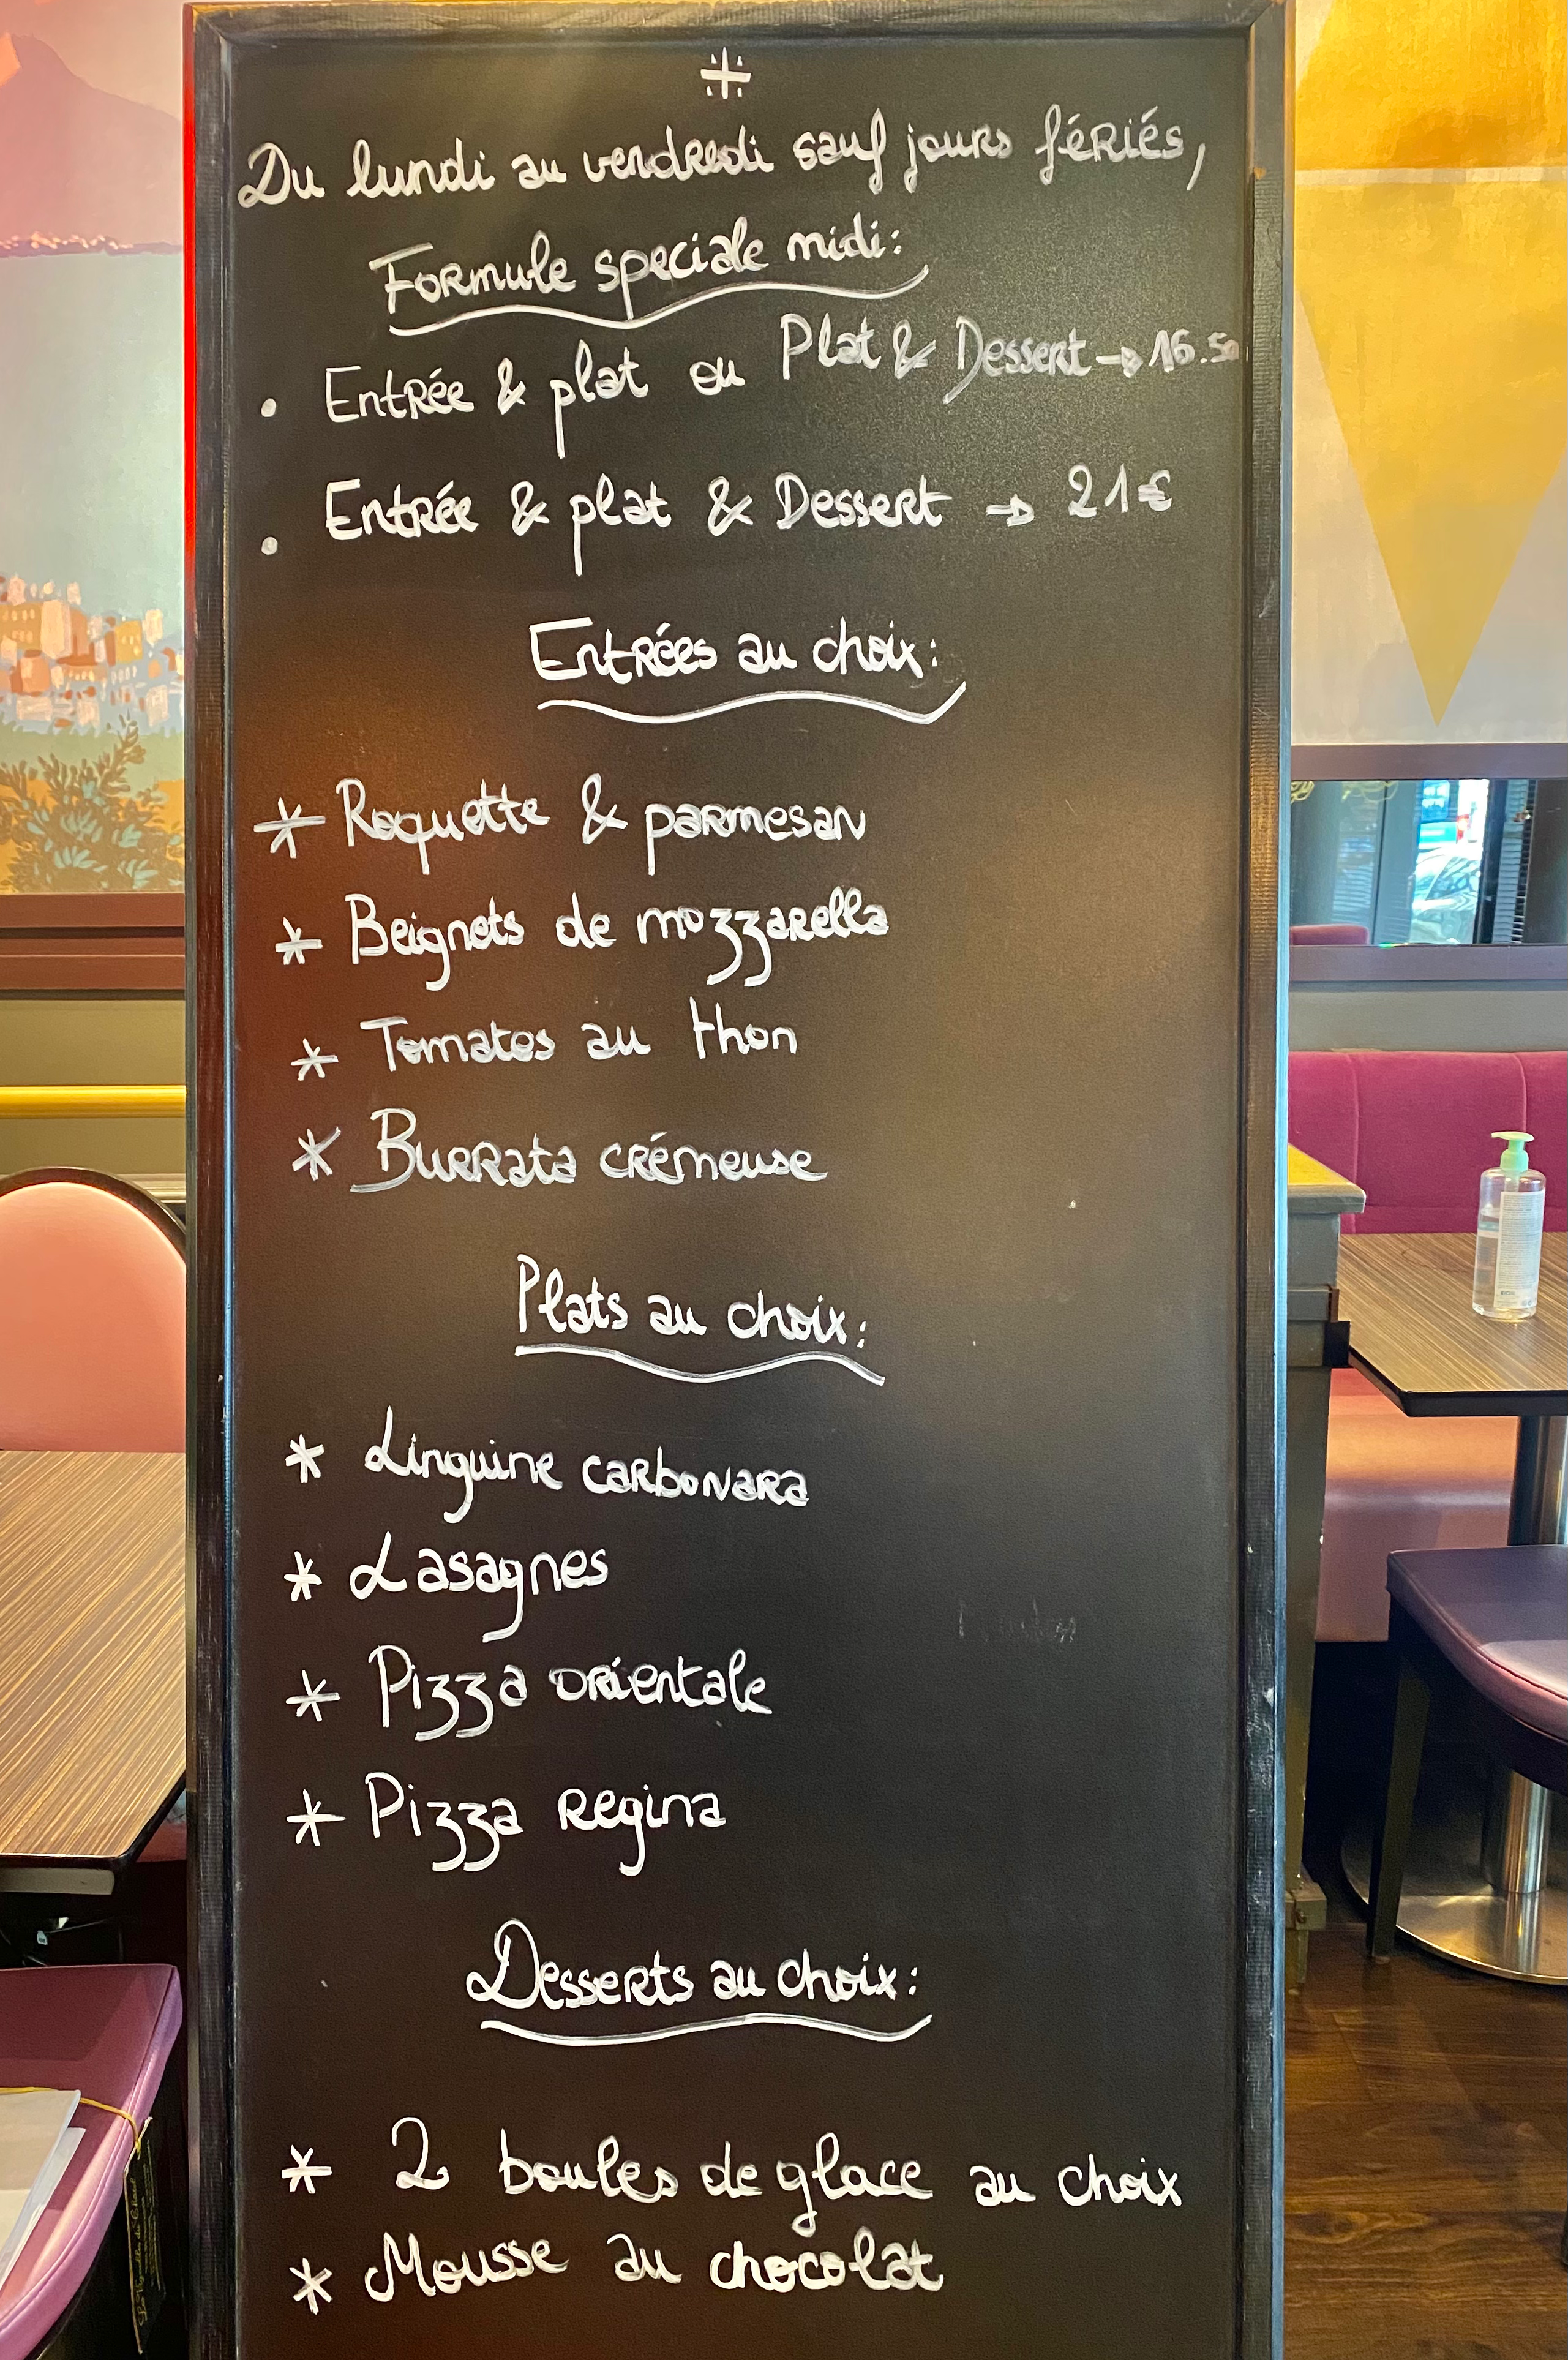 Du lundi au vendredi sauf jours fériés,
Formule speciale midi:
• Entrée & plat ou Plat & Dessert → 16.50
• Entrée & plat & Dessert → 21€
Entrées au choix:
* Roquette & parmesan
* Beignets de mozzarella
* Tomates au thon
* Burrata crémeuse
Plats au choix:
* Linguine carbonara
* Lasagnes
* Pizza orientale
* Pizza regina
Desserts au choix:
* 2 boules de glace au choix
* Mousse au chocolat